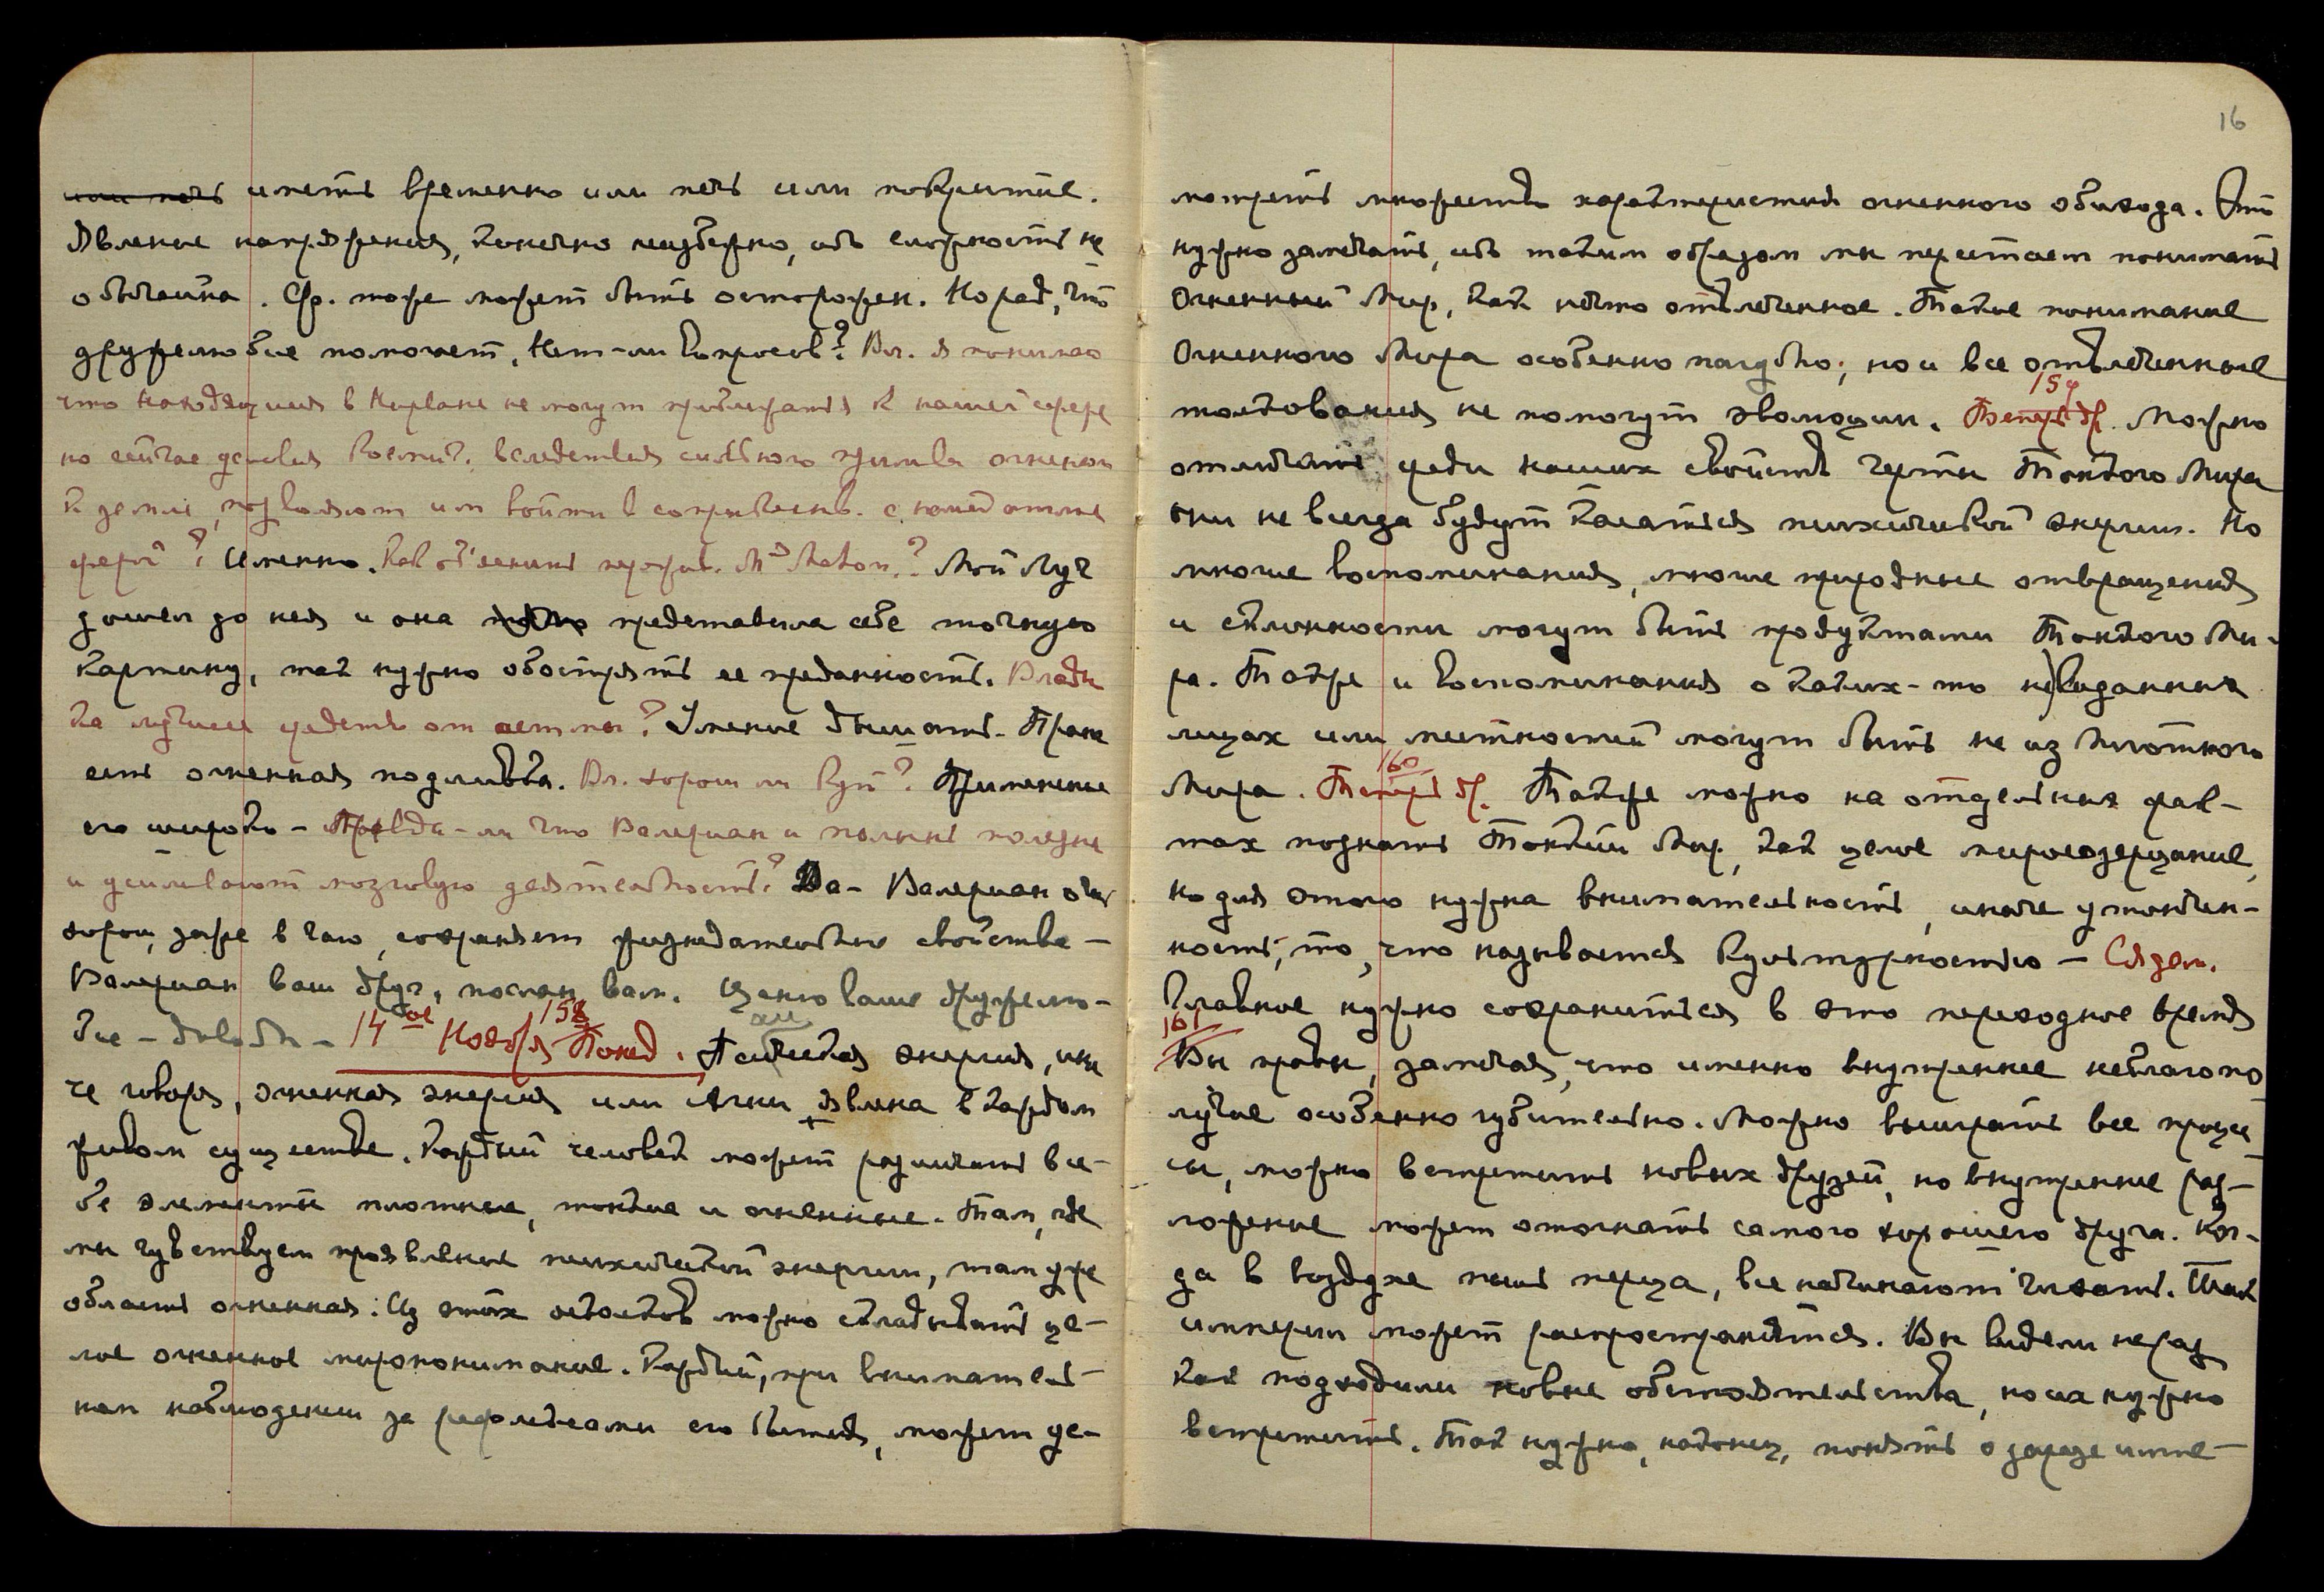 или печь иметь временно или печь или покрытие.
Явление напряжения, конечно неизбежно, ибо сложность не
обычайна. Фр. тоже может быть осторожен. Но рад, что
дружелюбие помогает. Нет-ли вопросов? Вл. я понимаю
что находящиеся в Нирване не могут приближаться к нашей сфере
но сейчас условия Космич. вследствия сильного прилива огненн.
к земле, позволяют им войти в соприкоснов. с нашей атмос
ферой? Именно. Как об'яснить пережив. М
Мой Луч
дошел до нея и она представила себе точную
картину, так нужно обострять ее преданность. Влады
ка лучшее средство от астмы? Умение дышать. Прана
есть огненная подливка. Вл. хорош ли Куп? Применение
его широко – Правда-ли что Валериан и полынь полезны
и усиливают мозговую деятельность? Да – Валериан оч.
хорош, даже в чаю, сохраняет жизнедательные свойства –
Валериан ваш друг, послан вам. Ценю ваше дружелю-
бие – довольно – 14ое Ноября 158 Понед. Психическая энергия, ина
че говоря, огненная энергия или Агни явлена в каждом
живом существе. Каждый человек может различать в се-
бе элементы плотные, тонкие и огненные. Там, где
мы чувствуем проявление психической энергии, там уже
область огненная. Из этих осколков можно складывать це-
лое огненное миропонимание. Каждый, при вниматель-
ном наблюдении за рефлексами его бытия, может ус-
16
мотреть множество характеристик огненного обихода. Это
нужно замечать, ибо таким образом мы перестаем понимать
Огненный Мир, как нечто отвлеченное. Такое понимание
Огненного Мира особенно пагубно; но и все отвлеченные
толкования не помогут эволюции. 159 Теперь др. Можно
отличать среди наших свойств черты Тонкого Мира
они не всегда будут касаться психической энергии. Но
многие воспоминания, многие природные отвращения
и склонности могут быть продуктами Тонкого Ми-
ра. Также и воспоминания о каких-то невиданных
лицах или местностей могут быть не из плотного
Мира. 160 Теперь др. Также можно на отдельных фак-
тах познать Тонкий Мир, как целое миросозерцание,
но для этого нужна внимательность, иначе утончен-
ность, то, что называется Культурностью – Сядем.
Главное нужно сохраниться в это переходное время
161
Вы правы, замечая, что именно внутреннее неблагопо
лучие особенно губительно. Можно выиграть все процес
сы, можно встретить новых друзей, но внутреннее раз-
ложение может отогнать самого хорошего друга. Ког-
да в воздухе пыль перца, все начинают чихать. Так
империл может распространяться. Вы видели не раз
как подходили новые обстоятельства, но их нужно
встретить. Так нужно, наконец, понять о заразе импе-